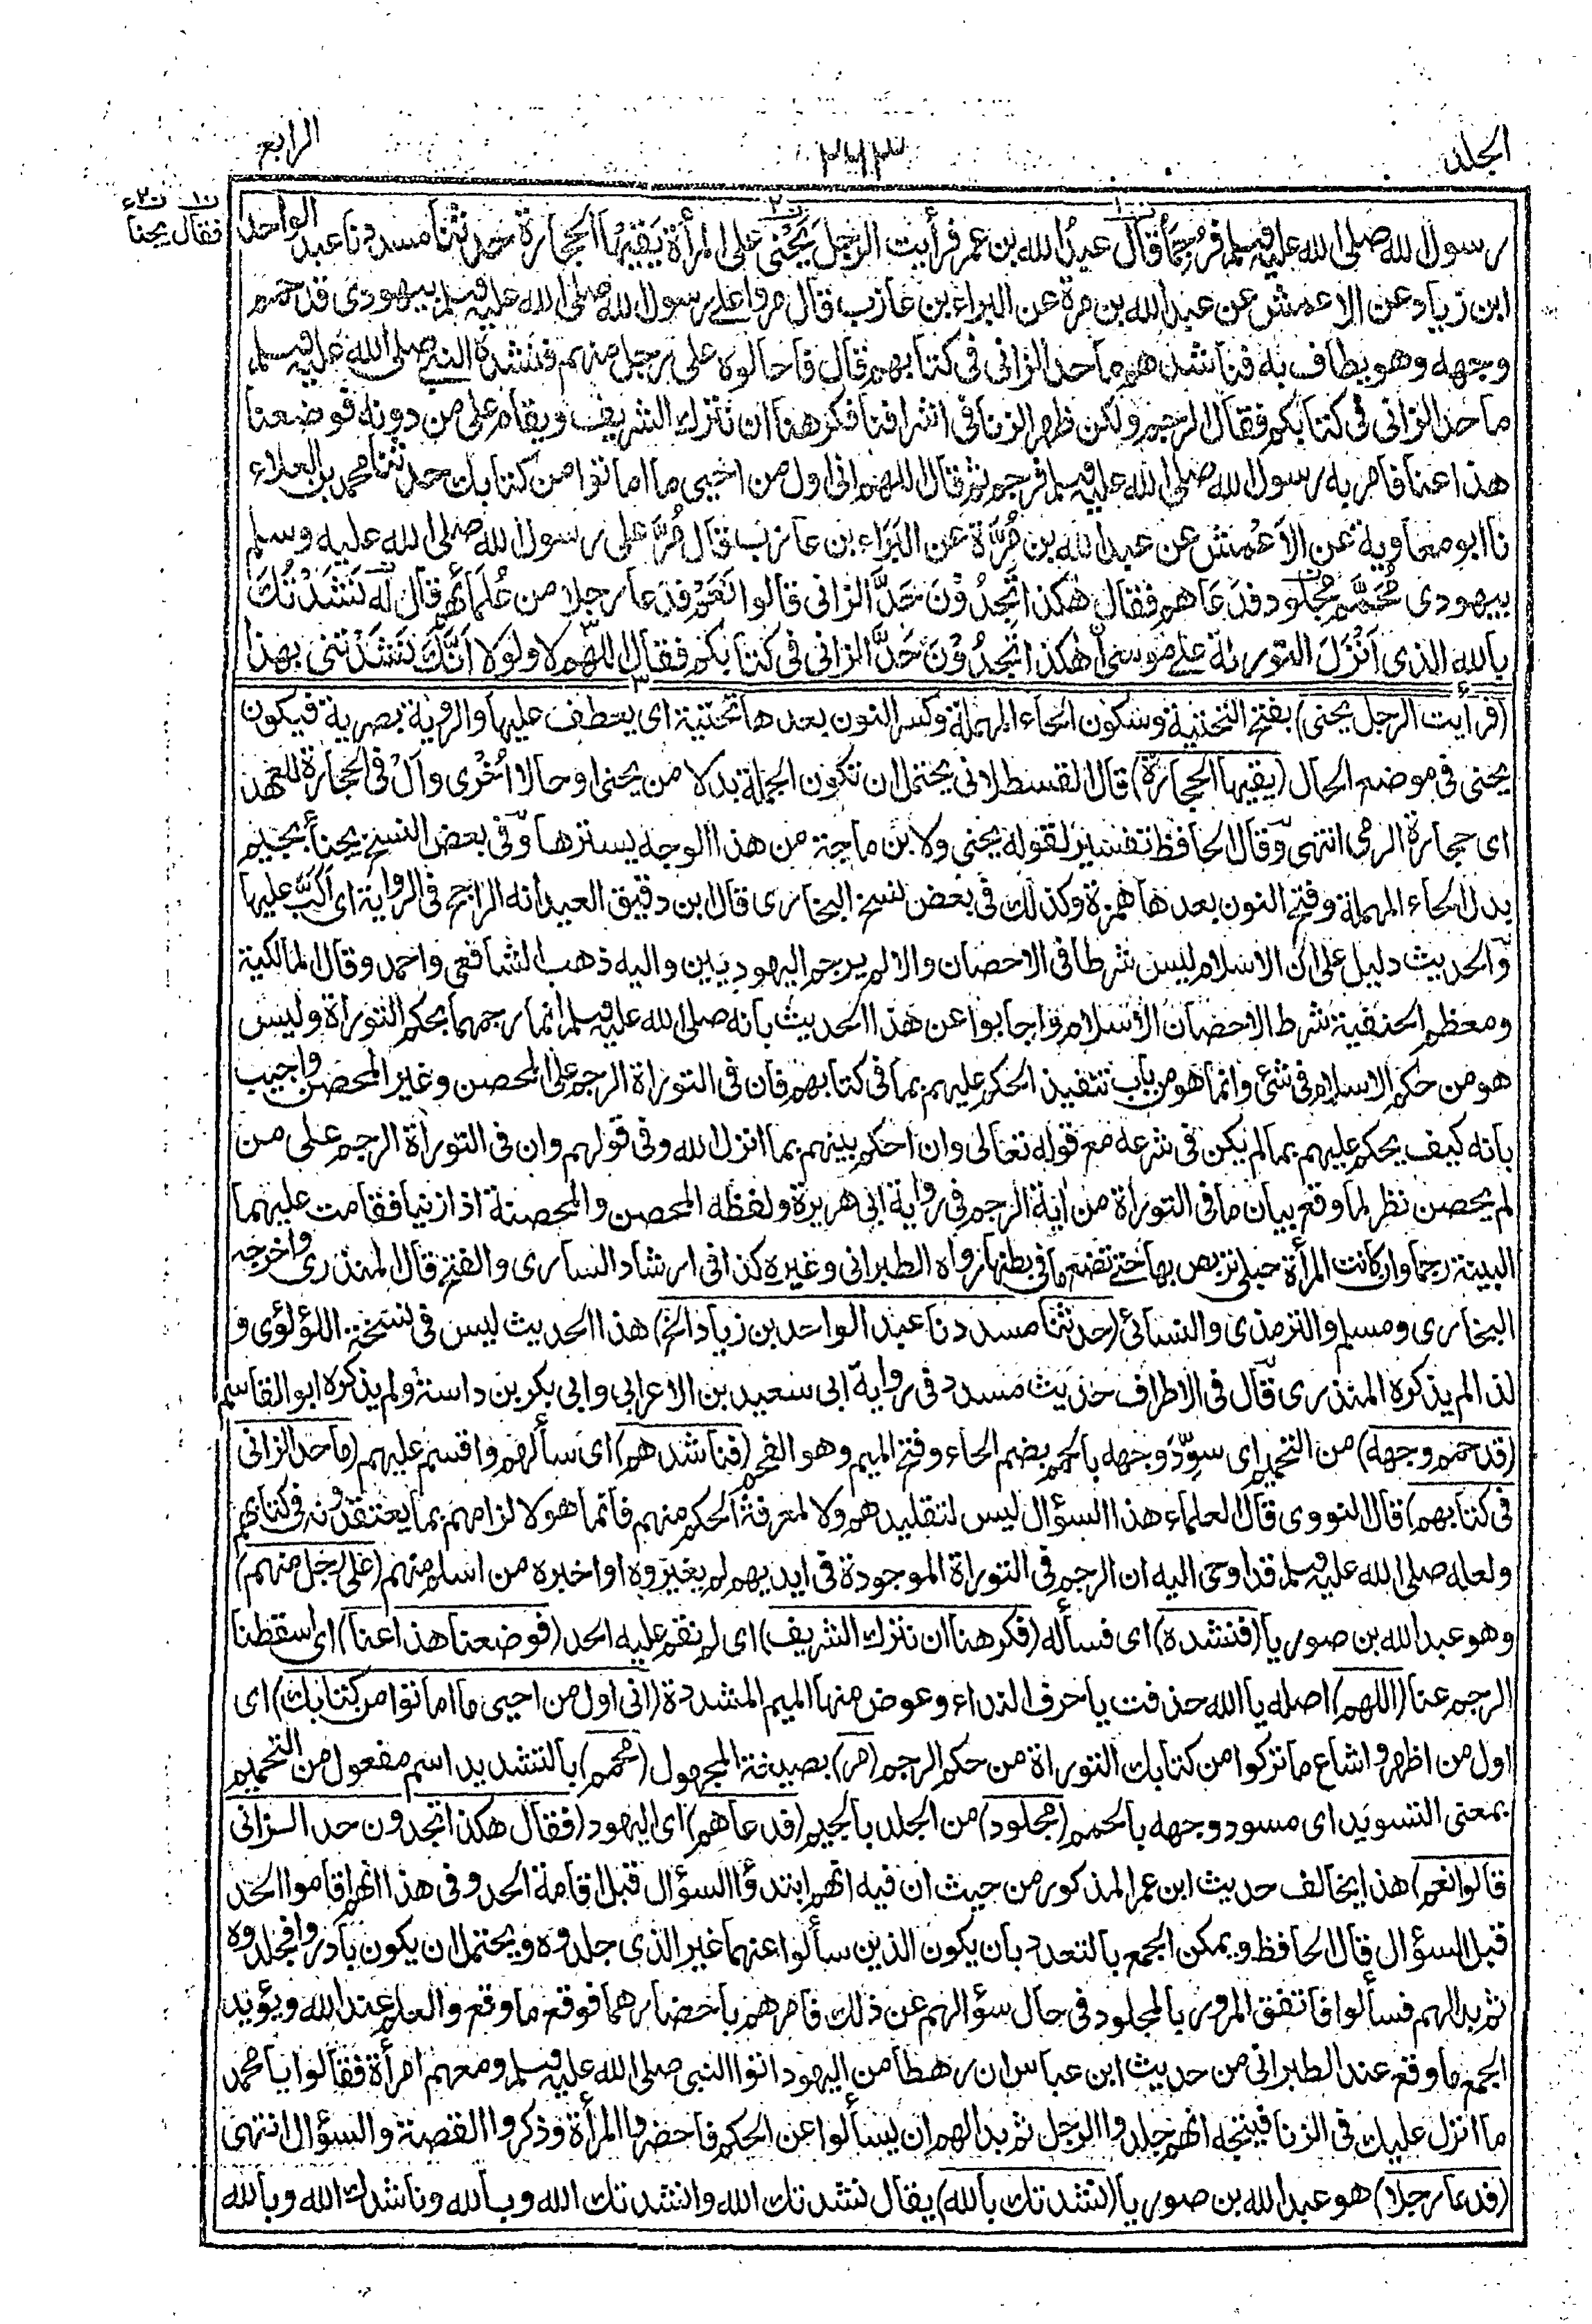 الجلد
٢٦٣
الرابع
فقال يجنا
رسول الله صلى الله عليه وسلم فرجما قال عبد الله بن عمر فرأيت الرجل يَحْنِى على المرأة يَقِيْهَا الحجارة حدثنا مسدد نا عبد الواحد
ابن زياد عن الاعمش عن عبد الله بن مرة عن البراء بن عازب قال مروا على رسول الله صلى الله عليه وسلم بيهودى قد حمم
وجهه وهو يطاف به فناشدهم ما حد الزانى فى كتابهم قال فاحالوه على رجل منهم فنشده النبى صلى الله عليه وسلم
ما حد الزانى فى كتابكم فقال الرجم ولكن ظهر الزنا فى اشرافنا فكرهنا ان نترك الشريف ويقام على من دونه فوضعنا
هذا عنا فامر به رسول الله صلى الله عليه وسلم فرجم ثم قال اللهم انى اول من احيى ما اماتوا من كتابك حدثنا محمد بن العلاء
نا ابو معاوية عن الاَعْمش عن عبد الله بن مُرَّة عن البَرَاء بن عازب قال مُرَّ على رسول الله صلى الله عليه وسلم
بيهودى مُحَمَّم مجلود فدعاهم فقال هٰكذا تجِدُوْنَ حَدَّ الزانى قالوا نَعَمْ فدعا رجلا من عُلَمائهم قال له نَشَدْتُكَ
بالله الذى اَنْزَلَ التورٰىة على موسى اهٰكذا تجِدُوْنَ حَدَّ الزانى فى كتابكم فقال اللّٰهم لا ولولا اَنَّكَ نَشَدْتَنى بهذا
(فرأيت الرجل يحنى) بفتح التحتية وسكون الحاء المهملة وكسر النون بعدها تحتية اى يعطف عليها والروية بصرية فيكون
يحنى فى موضع الحال (يقيها الحجارة) قال القسطلانى يحتمل ان تكون الجملة بدلا من يحنى او حالا اُخْرى وأل فى الحجارة للعهد
اى حجارة الرمى انتهى وقال الحافظ تفسير لقوله يحنى ولابن ماجة من هذا الوجه يسترها وفى بعض النسخ يجنأ بجيم
بدل الحاء المهملة وفتح النون بعدها همزة وكذلك فى بعض نسخ البخارى قال ابن دقيق العيد انه الراجح فى الرواية اى اَكَبَّ عليها
والحديث دليل على ان الاسلام ليس شرطا فى الاحصان والا لم يرجم اليهوديين واليه ذهب الشافعى واحمد وقال المالكية
ومعظم الحنفية شرط الاحصان الاسلام واجابوا عن هذا الحديث بانه صلى الله عليه وسلم انما رجمهما بحكم التوراة وليس
هو من حكم الاسلام فى شئ وانما هو من باب تنفيذ الحكم عليهم بما فى كتابهم فان فى التوراة الرجم على المحصن وغير المحصن واجيب
بانه كيف يحكم عليهم بما لم يكن فى شرعه مع قوله تعالى وان احكم بينهم بما انزل الله وفى قولهم وان فى التوراة الرجم على من
لم يحصن نظر لما وقع بيان ما فى التوراة من اٰية الرجم فى رواية ابى هريرة ولفظه المحصن والمحصنة اذا زنيا فقامت عليهما
البينة رجما وان كانت المرأة حبلى تربص بها حتى تضع ما فى بطنها رواه الطبرانى وغيره كذا فى ارشاد السارى والفتح قال المنذرى واخرجه
البخارى ومسلم والترمذى والنسائى (حدثنا مسدد نا عبد الواحد بن زياد الخ) هذا الحديث ليس فى نسخة اللؤلؤى و
لذا لم يذكره المنذرى قال فى الاطراف حديث مسدد فى رواية ابى سعيد بن الاعرابى وابى بكر بن داسة ولم يذكره ابو القاسم
(قد حمم وجهه) من التحميم اى سوّد وجهه بالحمم بضم الحاء وفتح الميم وهو الفحم (فناشدهم) اى سألهم واقسم عليهم (ما حد الزانى
فى كتابهم) قال النووى قال العلماء هذا السؤال ليس لتقليدهم ولا لمعرفة الحكم منهم فانما هو لالزامهم بما يعتقدونه فى كتابهم
ولعله صلى الله عليه وسلم قد اوحى اليه ان الرجم فى التوراة الموجودة فى ايديهم لم يغيّروه او اخبره من اسلم منهم (على رجل منهم)
وهو عبد الله بن صوريا (فنشده) اى فسأله (فكرهنا ان نترك الشريف) اى لم نقم عليه الحد (فوضعنا هذا عنا) اى اسقطنا
الرجم عنا (اللهم) اصله يا الله حذفت يا حرف النداء وعوض منها الميم المشددة (انى اول من احيى ما اماتوا من كتابك) اى
اول من اظهر واشاع ما تركوا من كتابك التوراة من حكم الرجم (مر) بصيغة المجهول (محمم) بالتشديد اسم مفعول من التحميم
بمعنى التسويد اى مسود وجهه بالحمم (مجلود) من الجلد بالجيم (فدعاهم) اى اليهود (فقال هكذا تجدون حد الزانى
قالوا نعم) هذا يخالف حديث ابن عمر المذكور من حيث ان فيه انهم ابتدؤا السؤال قبل اقامة الحد وفى هذا انهم اقاموا الحد
قبل السؤال قال الحافظ ويمكن الجمع بالتعدد بان يكون الذين سألوا عنهما غير الذى جلدوه ويحتمل ان يكون بادروا فجلدوه
ثم بدا لهم فسألوا فاتفق المرور بالمجلود فى حال سؤالهم عن ذلك فامرهم باحضارهما فوقع ما وقع والعلم عند الله ويؤيد
الجمع ما وقع عند الطبرانى من حديث ابن عباس ان رهطا من اليهود اتوا النبى صلى الله عليه وسلم ومعهم امرأة فقالوا يا محمد
ما انزل عليك فى الزنا فيتجه انهم جلدوا الرجل ثم بدا لهم ان يسألوا عن الحكم فاحضروا المرأة وذكروا القصة والسؤال انتهى
(فدعا رجلا) هو عبد الله بن صوريا (نشدتك بالله) يقال نشدتك الله وانشدتك الله وبالله وناشدتك الله وبالله